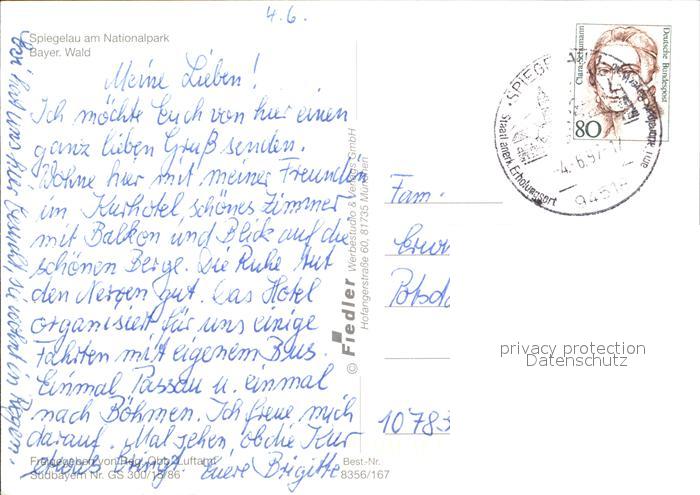 4.6.
Spiegelau am Nationalpark
Bayer. Wald
Meine Lieben!
Ich möchte Euch von hier einen
ganz lieben Gruß senden.
Wohne hier mit meiner Freundin
im Kurhotel, schönes Zimmer
mit Balkon und Blick auf die
schönen Berge. Die Ruhe tut
den Nerven gut. Das Hotel
organisiert für uns einige
Fahrten mit eigenem Bus.
Einmal Passau u. einmal
nach Böhmen. Ich freue mich
darauf. Mal sehen, ob die Kur
etwas bringt. Eure Brigitte
hat uns hier besucht, sie wohnt in Regen.
Freigegeben von Reg. Obb. Luftamt
Südbayern Nr. GS 300/
86
© Fiedler Werbestudio & Verlags GmbH
Hofangerstraße 60, 81735 München
Best.-Nr.
8356/167
Deutsche Bundespost
Clara Schumann
80
SPIEGE
Staatl. anerk. Erholungsort
4.6.97-17
9451
Fam.
Erw
Potsda
10783
privacy protection
Datenschutz